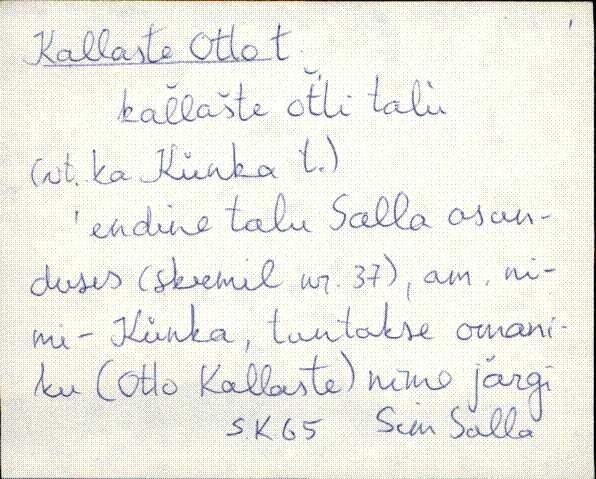 Kallaste Otto t.
kal̆lašte ot̆ti talù
(vt. ka Künka t.)
'endine talu Salla asun-
duses (skeemil nr. 37), am. ni-
mi - Künka, tuntakse omani-
ku (Otto Kallaste) nime järgi
SK65 Sim Salla